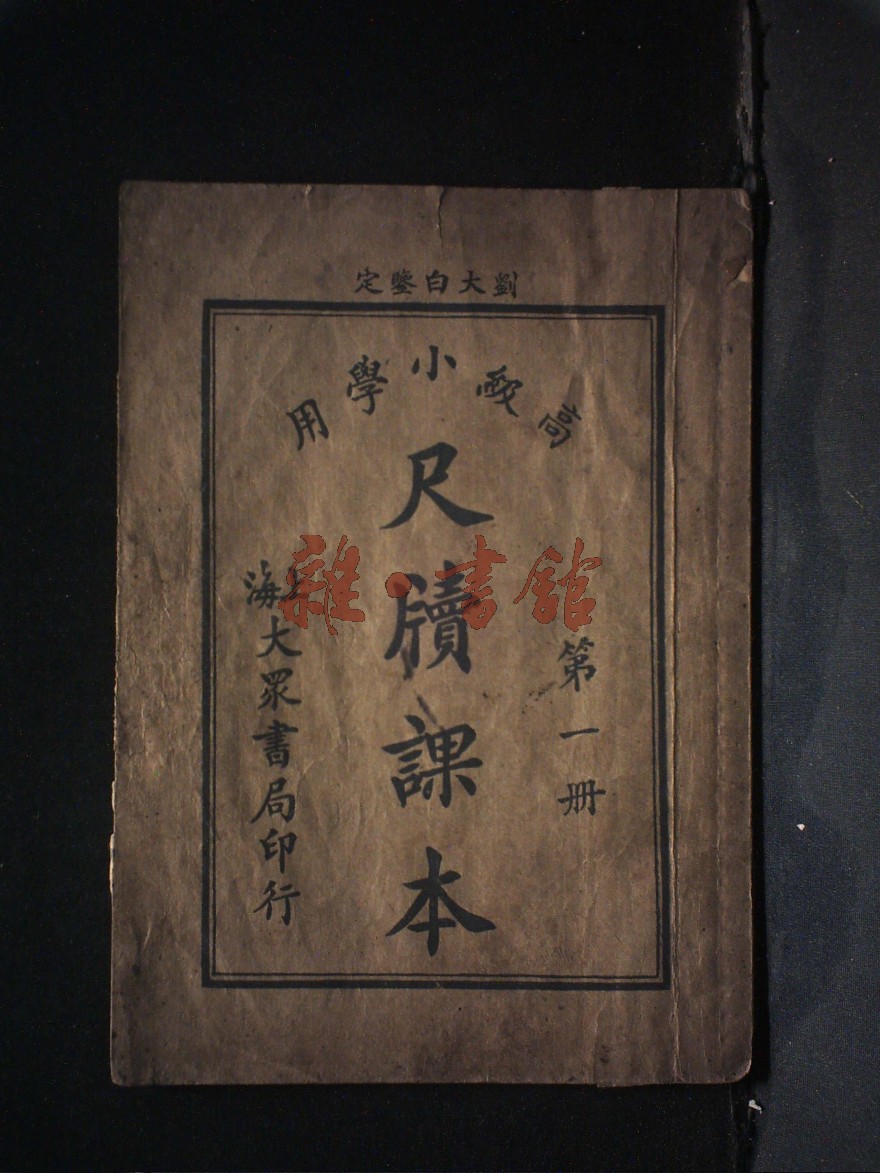 劉大白鑒定
高級小學用
尺牘課本
第一册
海大眾書局印行
雜·書館